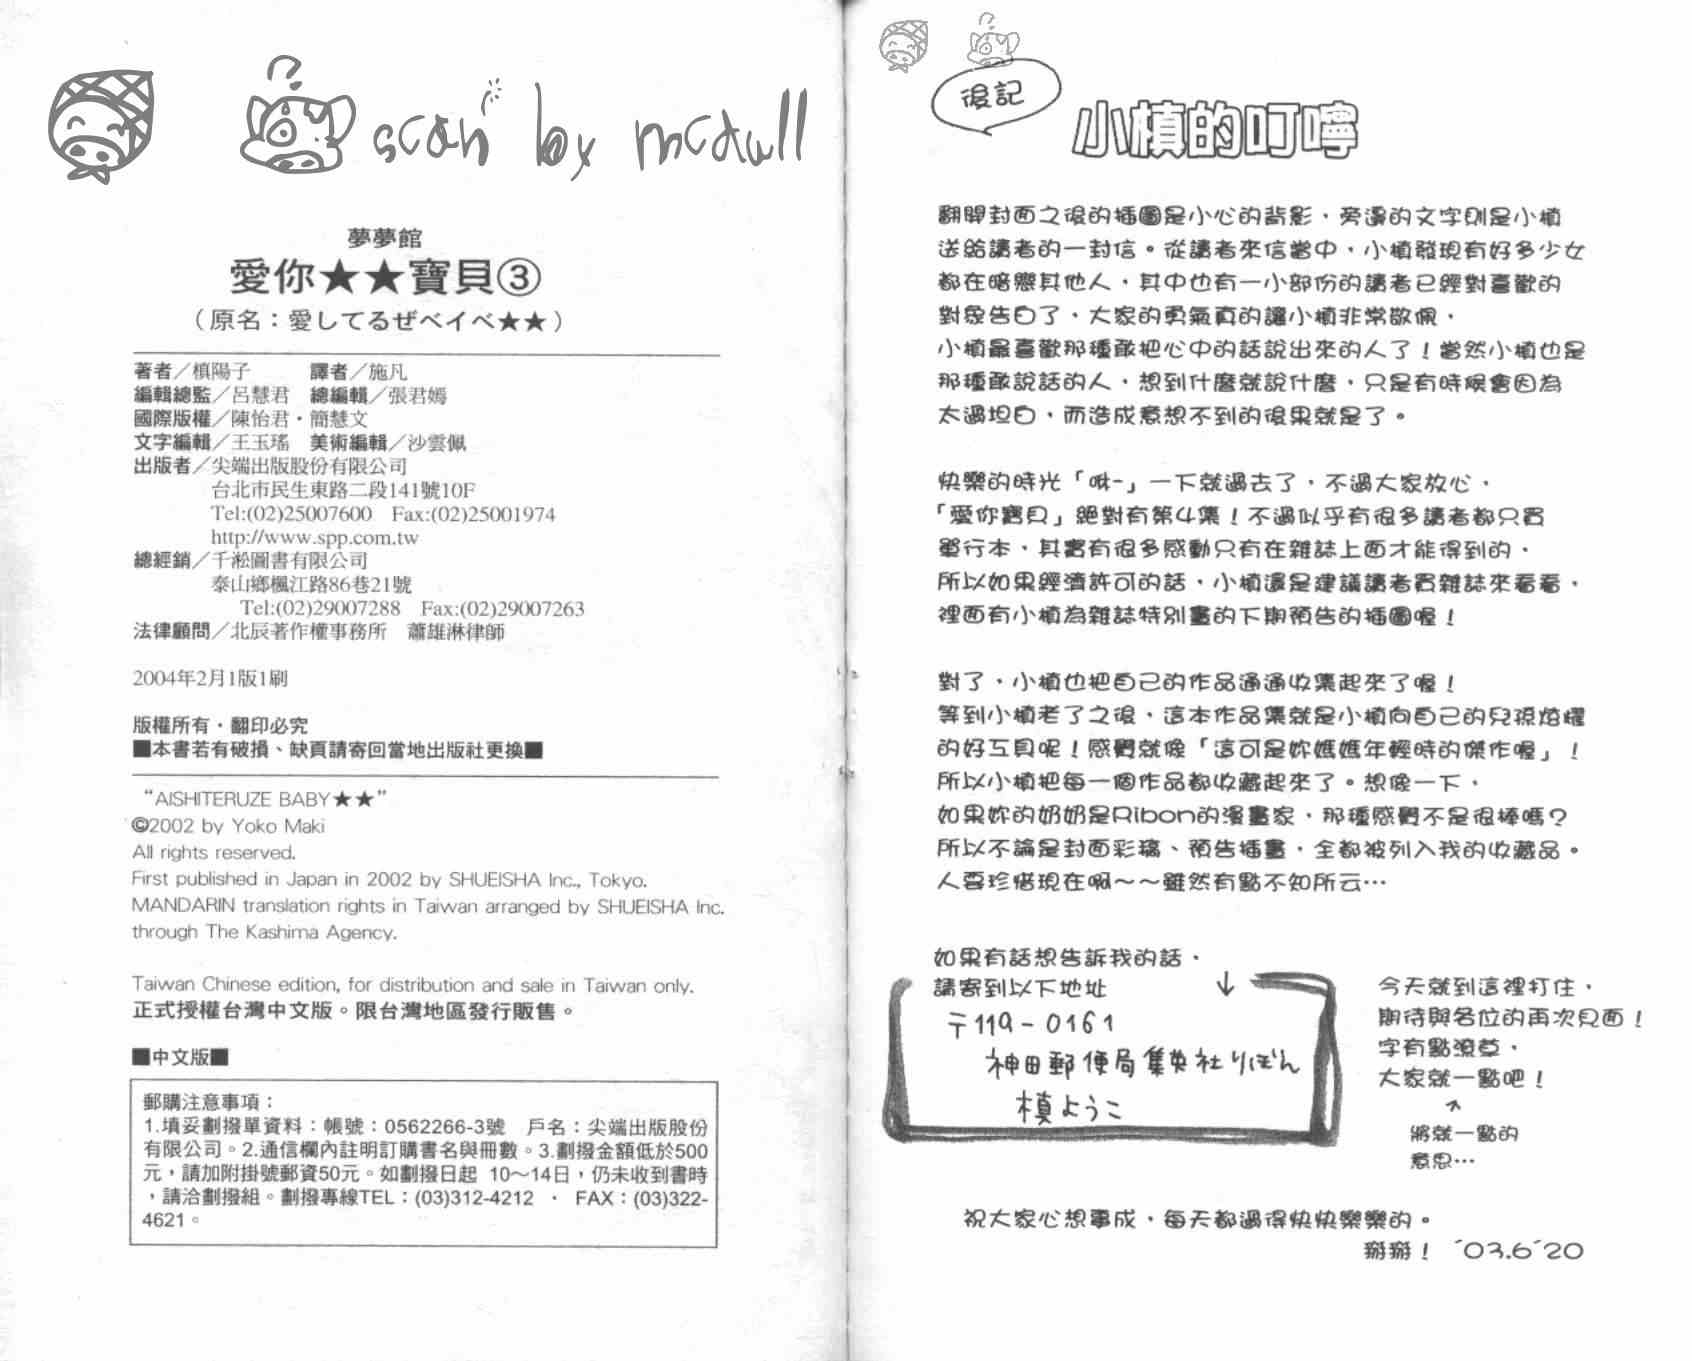 scan by mcdull
夢夢館
愛你★★寶貝③
（原名：愛してるぜベイベ★★）
著者／槙陽子　譯者／施凡
編輯總監／呂慧君　總編輯／張君嫣
國際版權／陳怡君・簡慧文
文字編輯／王玉瑤　美術編輯／沙雲佩
出版者／尖端出版股份有限公司
台北市民生東路二段141號10F
Tel:(02)25007600　Fax:(02)25001974
http://www.spp.com.tw
總經銷／千淞圖書有限公司
泰山鄉楓江路86巷21號
Tel:(02)29007288　Fax:(02)29007263
法律顧問／北辰著作權事務所　蕭雄淋律師
2004年2月1版1刷
版權所有・翻印必究
■本書若有破損、缺頁請寄回當地出版社更換■
“AISHITERUZE BABY★★”
©2002 by Yoko Maki
All rights reserved.
First published in Japan in 2002 by SHUEISHA Inc., Tokyo.
MANDARIN translation rights in Taiwan arranged by SHUEISHA Inc.
through The Kashima Agency.
Taiwan Chinese edition, for distribution and sale in Taiwan only.
正式授權台灣中文版。限台灣地區發行販售。
■中文版■
郵購注意事項：
1.填妥劃撥單資料：帳號：0562266-3號　戶名：尖端出版股份
有限公司。2.通信欄內註明訂購書名與冊數。3.劃撥金額低於500
元，請加附掛號郵資50元。如劃撥日起 10～14日，仍未收到書時
，請洽劃撥組。劃撥專線TEL：(03)312-4212 ・ FAX：(03)322-
4621。
後記
小槙的叮嚀
翻開封面之後的插圖是小心的背影，旁邊的文字則是小槙
送給讀者的一封信。從讀者來信當中，小槙發現有好多少女
都在暗戀其他人，其中也有一小部份的讀者已經對喜歡的
對象告白了，大家的勇氣真的讓小槙非常敬佩，
小槙最喜歡那種敢把心中的話說出來的人了！當然小槙也是
那種敢說話的人，想到什麼就說什麼，只是有時候會因為
太過坦白，而造成意想不到的後果就是了。
快樂的時光「咻-」一下就過去了，不過大家放心，
「愛你寶貝」絕對有第4集！不過似乎有很多讀者都只買
單行本，其實有很多感動只有在雜誌上面才能得到的，
所以如果經濟許可的話，小槙還是建議讀者買雜誌來看看，
裡面有小槙為雜誌特別畫的下期預告的插圖喔！
對了，小槙也把自己的作品通通收集起來了喔！
等到小槙老了之後，這本作品集就是小槙向自己的兒孫炫耀
的好工具呢！感覺就像「這可是妳媽媽年輕時的傑作喔」！
所以小槙把每一個作品都收藏起來了。想像一下，
如果妳的奶奶是Ribon的漫畫家，那種感覺不是很棒嗎？
所以不論是封面彩稿、預告插畫，全都被列入我的收藏品。
人要珍惜現在啊～～雖然有點不知所云…
如果有話想告訴我的話，
請寄到以下地址　↓
〒119-0161
神田郵便局集英社りぼん
槙ようこ
今天就到這裡打住，
期待與各位的再次見面！
字有點潦草，
大家就一點吧！
將就一點的
意思…
祝大家心想事成，每天都過得快快樂樂的。
掰掰！ ´03.6´20